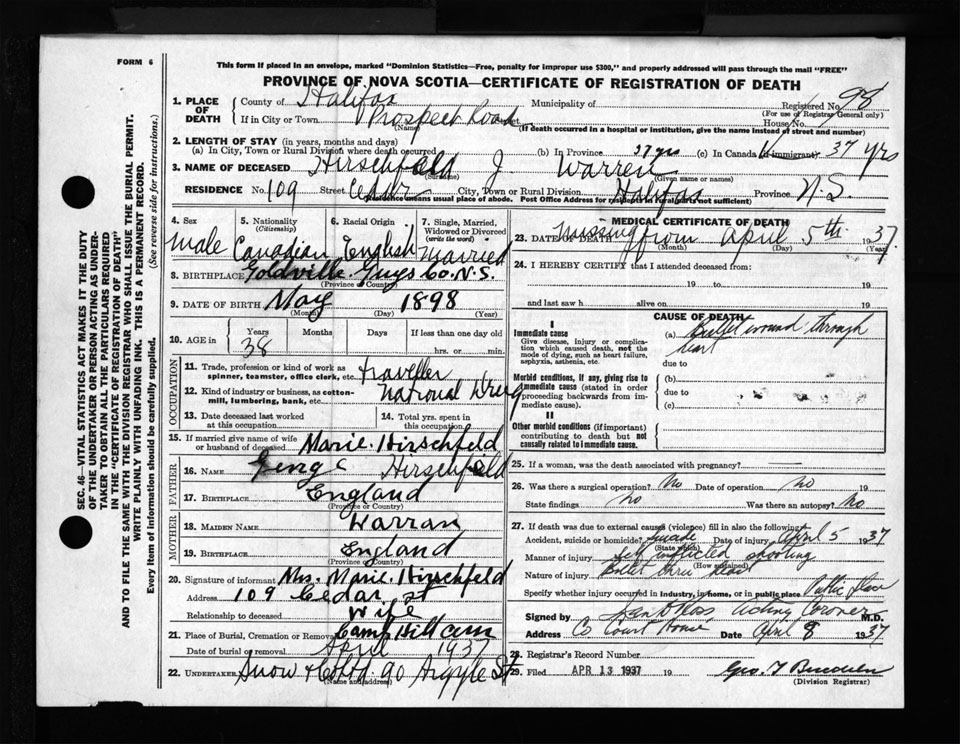 FORM 6
This form if placed in an envelope, marked "Dominion Statistics—Free, penalty for improper use $300," and properly addressed will pass through the mail "FREE"
PROVINCE OF NOVA SCOTIA—CERTIFICATE OF REGISTRATION OF DEATH
1. PLACE OF DEATH
County of Halifax Municipality of Registered No. 98
(For use of Registrar General only)
If in City or Town Prospect Road Street House No.
(Name)
(If death occurred in a hospital or institution, give the name instead of street and number)
2. LENGTH OF STAY (in years, months and days)
(a) In City, Town or Rural Division where death occurred (b) In Province 37 yrs (c) In Canada if immigrant 37 yrs
3. NAME OF DECEASED Hirschfeld J. Warren
(Surname) (Given name or names)
RESIDENCE No. 109 Street Cedar City, Town or Rural Division Halifax Province N.S.
(Residence means usual place of abode. Post Office Address for residents in rural parts not sufficient)
4. Sex
male
5. Nationality
(Citizenship)
Canadian
6. Racial Origin
English
7. Single, Married, Widowed or Divorced
(write the word)
married
8. BIRTHPLACE Goldville Guys Co. N.S.
(Province or Country)
9. DATE OF BIRTH May 1898
(Month) (Day) (Year)
10. AGE in
Years Months Days If less than one day old
38 hrs. or min.
OCCUPATION
11. Trade, profession or kind of work as spinner, teamster, office clerk, etc. traveller
12. Kind of industry or business, as cotton-mill, lumbering, bank, etc. National Drug
13. Date deceased last worked at this occupation
14. Total yrs. spent in this occupation
15. If married give name of wife or husband of deceased Marie Hirschfeld
FATHER
16. NAME George Hirschfeld
17. BIRTHPLACE England
(Province or Country)
MOTHER
18. MAIDEN NAME Warran
19. BIRTHPLACE England
(Province or Country)
20. Signature of informant Mrs. Marie Hirschfeld
Address 109 Cedar St
Relationship to deceased Wife
21. Place of Burial, Cremation or Removal Camp Hill Cem
Date of burial or removal April 1937
22. UNDERTAKER Snow & Co Ltd. 90 Argyle St
(Name and address)
MEDICAL CERTIFICATE OF DEATH
23. DATE OF DEATH missing from April 5th 1937
(Month) (Day) (Year)
24. I HEREBY CERTIFY that I attended deceased from:
19 to 19
and last saw h alive on 19
CAUSE OF DEATH
I
Immediate cause
Give disease, injury or complication which caused death, not the mode of dying, such as heart failure, asphyxia, asthenia, etc.
(a) Bullet wound through heart
due to
Morbid conditions, if any, giving rise to immediate cause (stated in order proceeding backwards from immediate cause).
(b)
due to
(c)
II
Other morbid conditions (if important) contributing to death but not causally related to immediate cause.
25. If a woman, was the death associated with pregnancy?
26. Was there a surgical operation? No Date of operation no 19
State findings no Was there an autopsy? No
27. If death was due to external causes (violence) fill in also the following:
Accident, suicide or homicide? Suicide Date of injury April 5 1937
(State which)
Manner of injury Self inflicted shooting
(How sustained)
Nature of injury Bullet thru heart
Specify whether injury occurred in industry, in home, or in public place Public place
Signed by Acting Coroner M.D.
Address Co Court House Date April 8 1937
28. Registrar's Record Number
29. Filed APR 13 1937 19 Geo. T
(Division Registrar)
SEC. 46—VITAL STATISTICS ACT MAKES IT THE DUTY
OF THE UNDERTAKER OR PERSON ACTING AS UNDER-
TAKER TO OBTAIN ALL THE PARTICULARS REQUIRED
IN THE "CERTIFICATE OF REGISTRATION OF DEATH"
AND TO FILE THE SAME WITH THE DIVISION REGISTRAR WHO SHALL ISSUE THE BURIAL PERMIT.
WRITE PLAINLY WITH UNFADING INK. THIS IS A PERMANENT RECORD.
Every item of information should be carefully supplied. (See reverse side for instructions.)